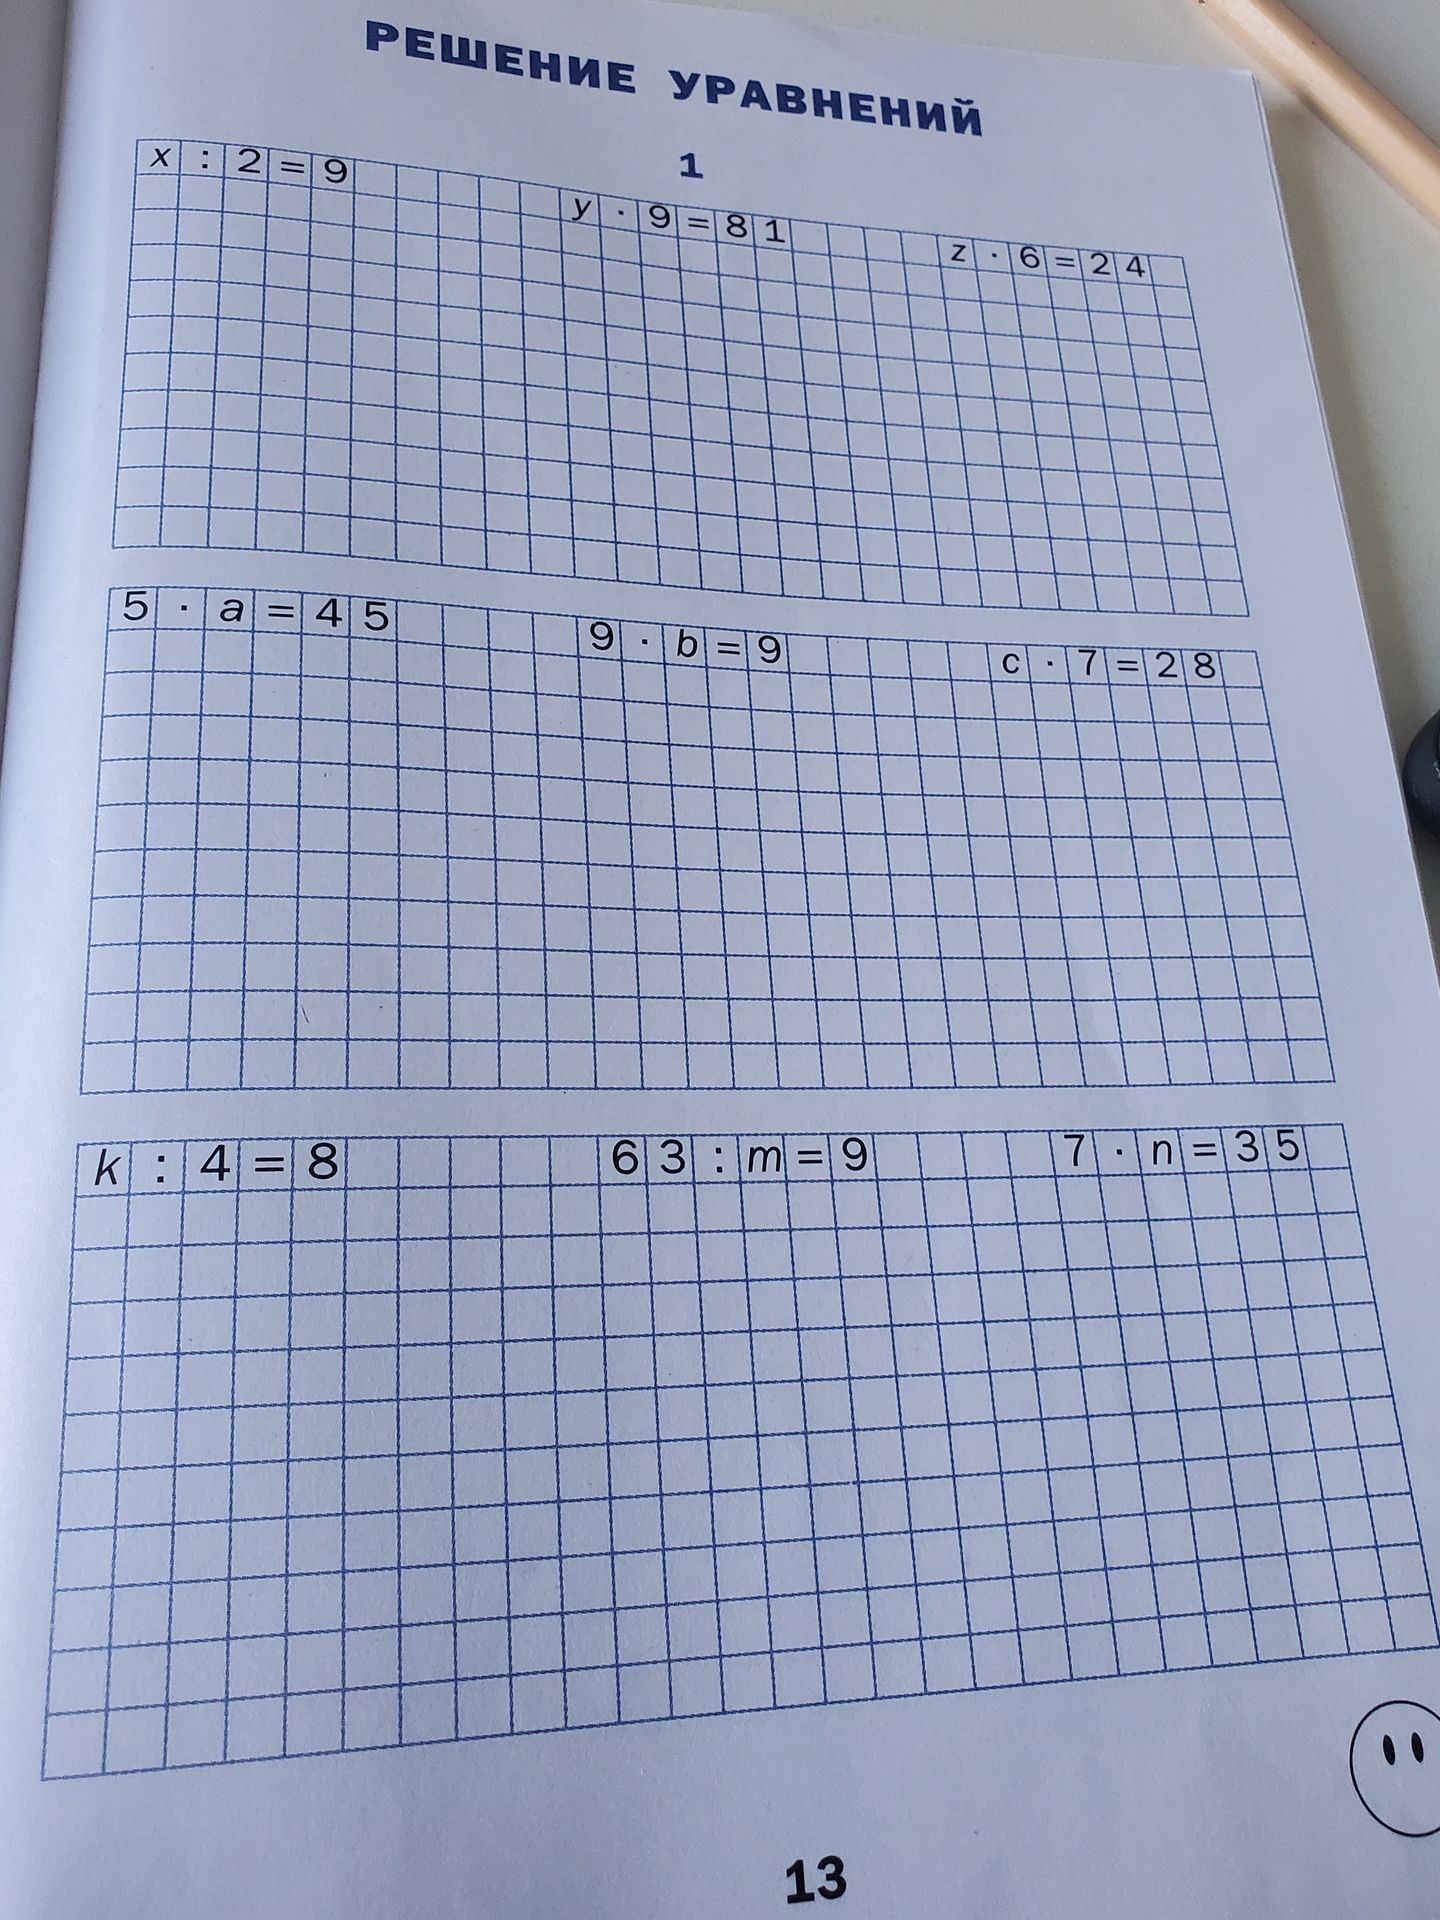 РЕШЕНИЕ УРАВНЕНИЙ
1
x : 2 = 9
y · 9 = 81
z · 6 = 24
5 · a = 45
9 · b = 9
c · 7 = 28
k : 4 = 8
63 : m = 9
7 · n = 35
13